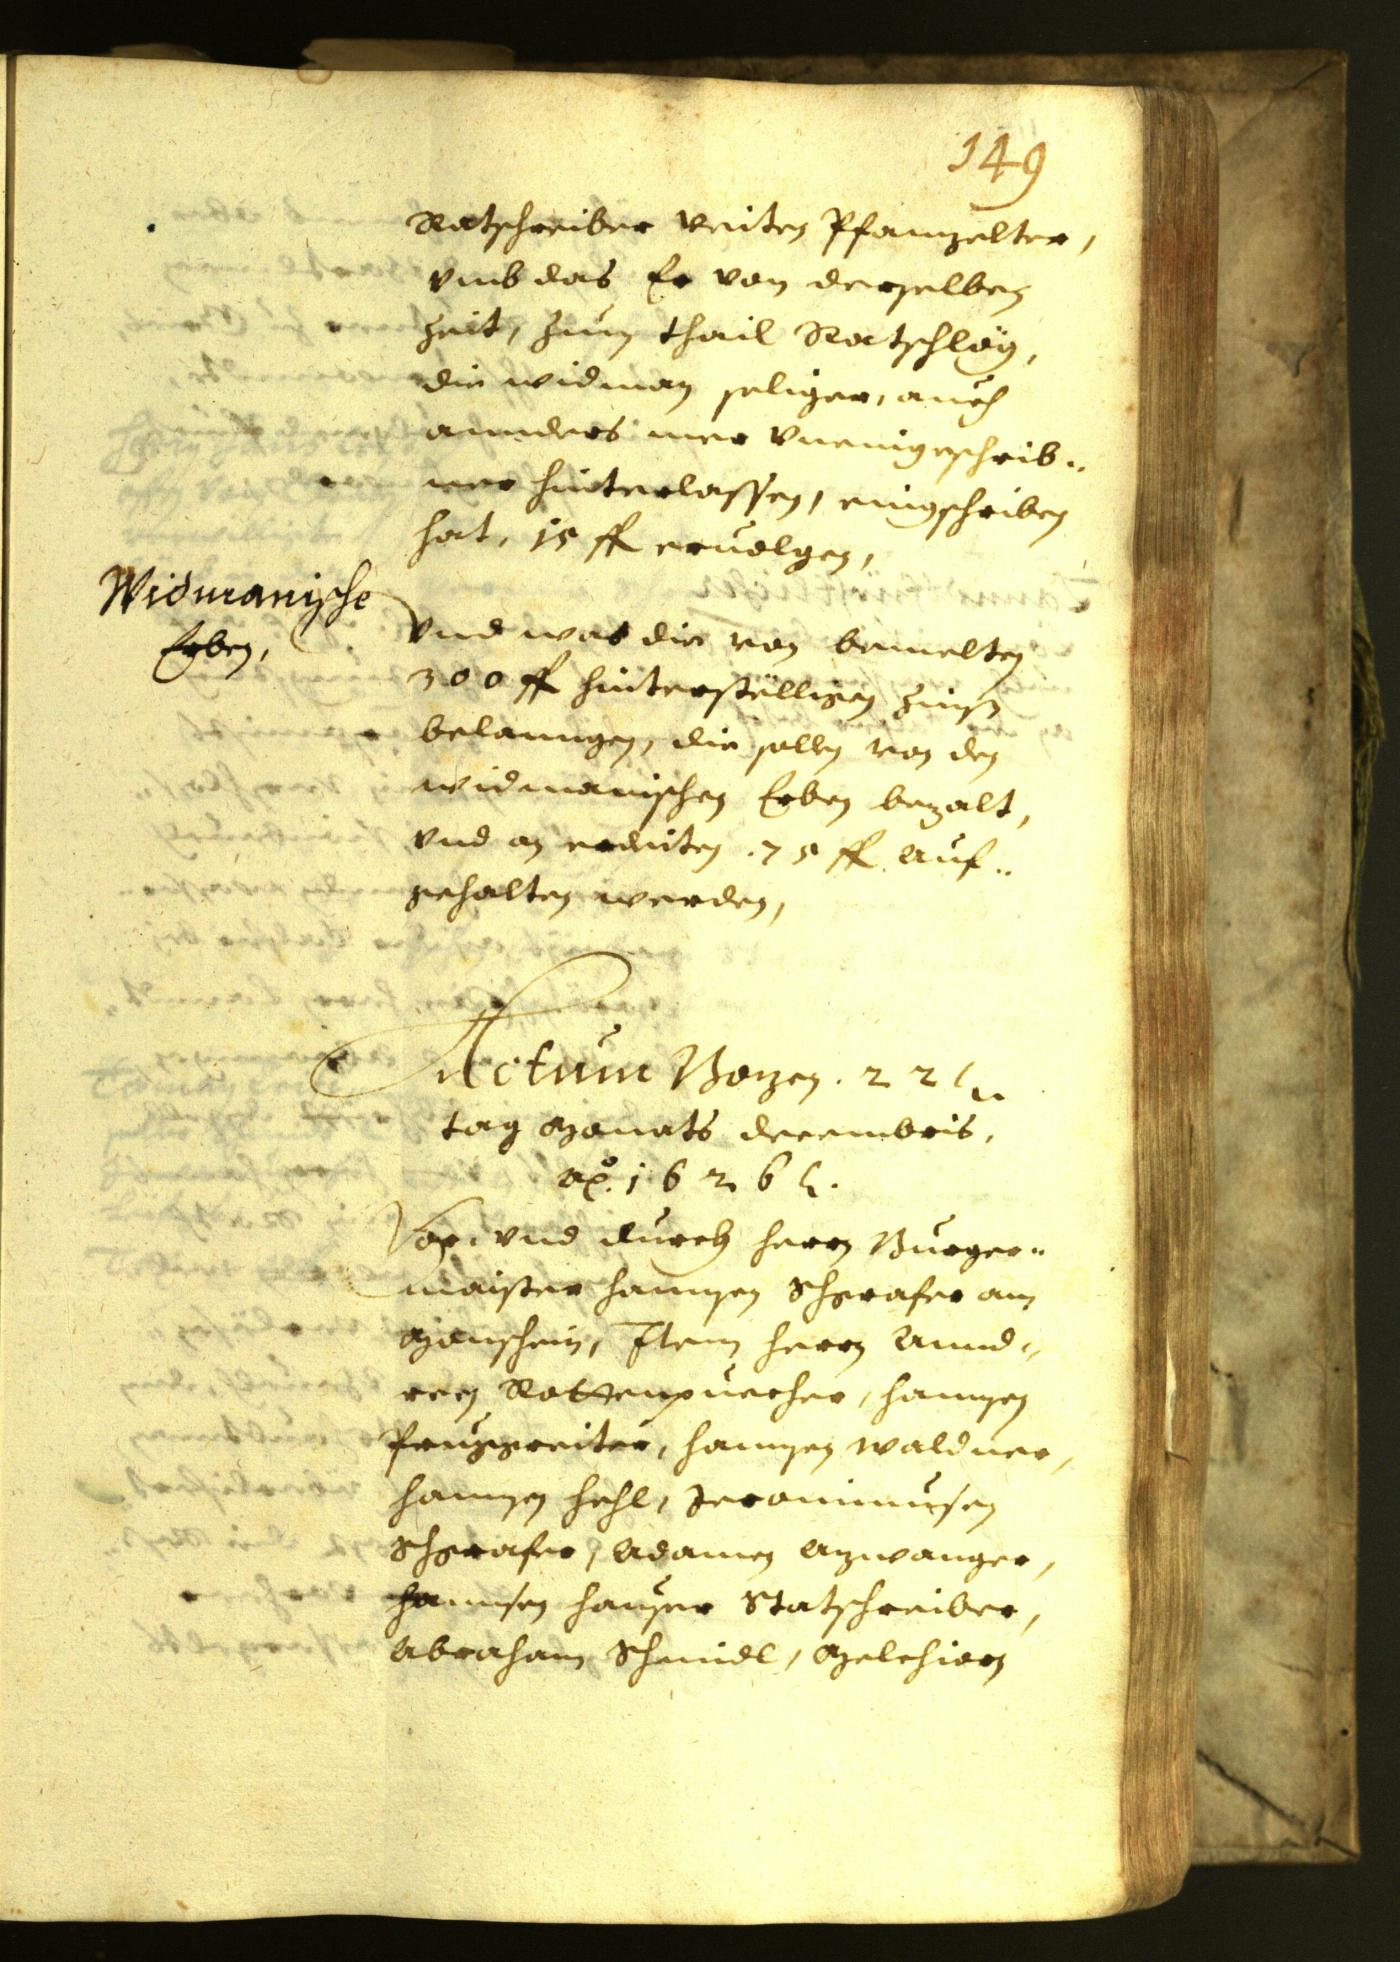 149
Ratschreiber Veiten Pfanzelter,
vmb das Er von derselben
Zeit, zum thail Ratschleg,
die widman seliger, auch
annders mer Vneingeschrib„
ner hinterlassen, eingschriben
hat, 15 ff ervolgen,
Widmanische
Erben,
Vnd was die von bemelten
300 ff hinterstelligen Zinss
belanngen, die sollen von den
widmanischen Erben bezalt,
vnd an ereuten .75 ff. auf„
gehalten werden,
Actum Bozen . 22 ten
tag Monats decembris,
Ao. 1626 h.
Vor. vnd durch herrn Burger„
maister hannsen Schgrafer am
Monschein, Item herrn Annd„
reen Rottenpuecher, hannsen
Pruggreiter, hannsen Waldner,
hannsen hehl, Jeronimusen
Schgrafer, Adamen Azwanger,
hannsen hauser Statschreiber,
Abraham Schmidl, Melchiorn